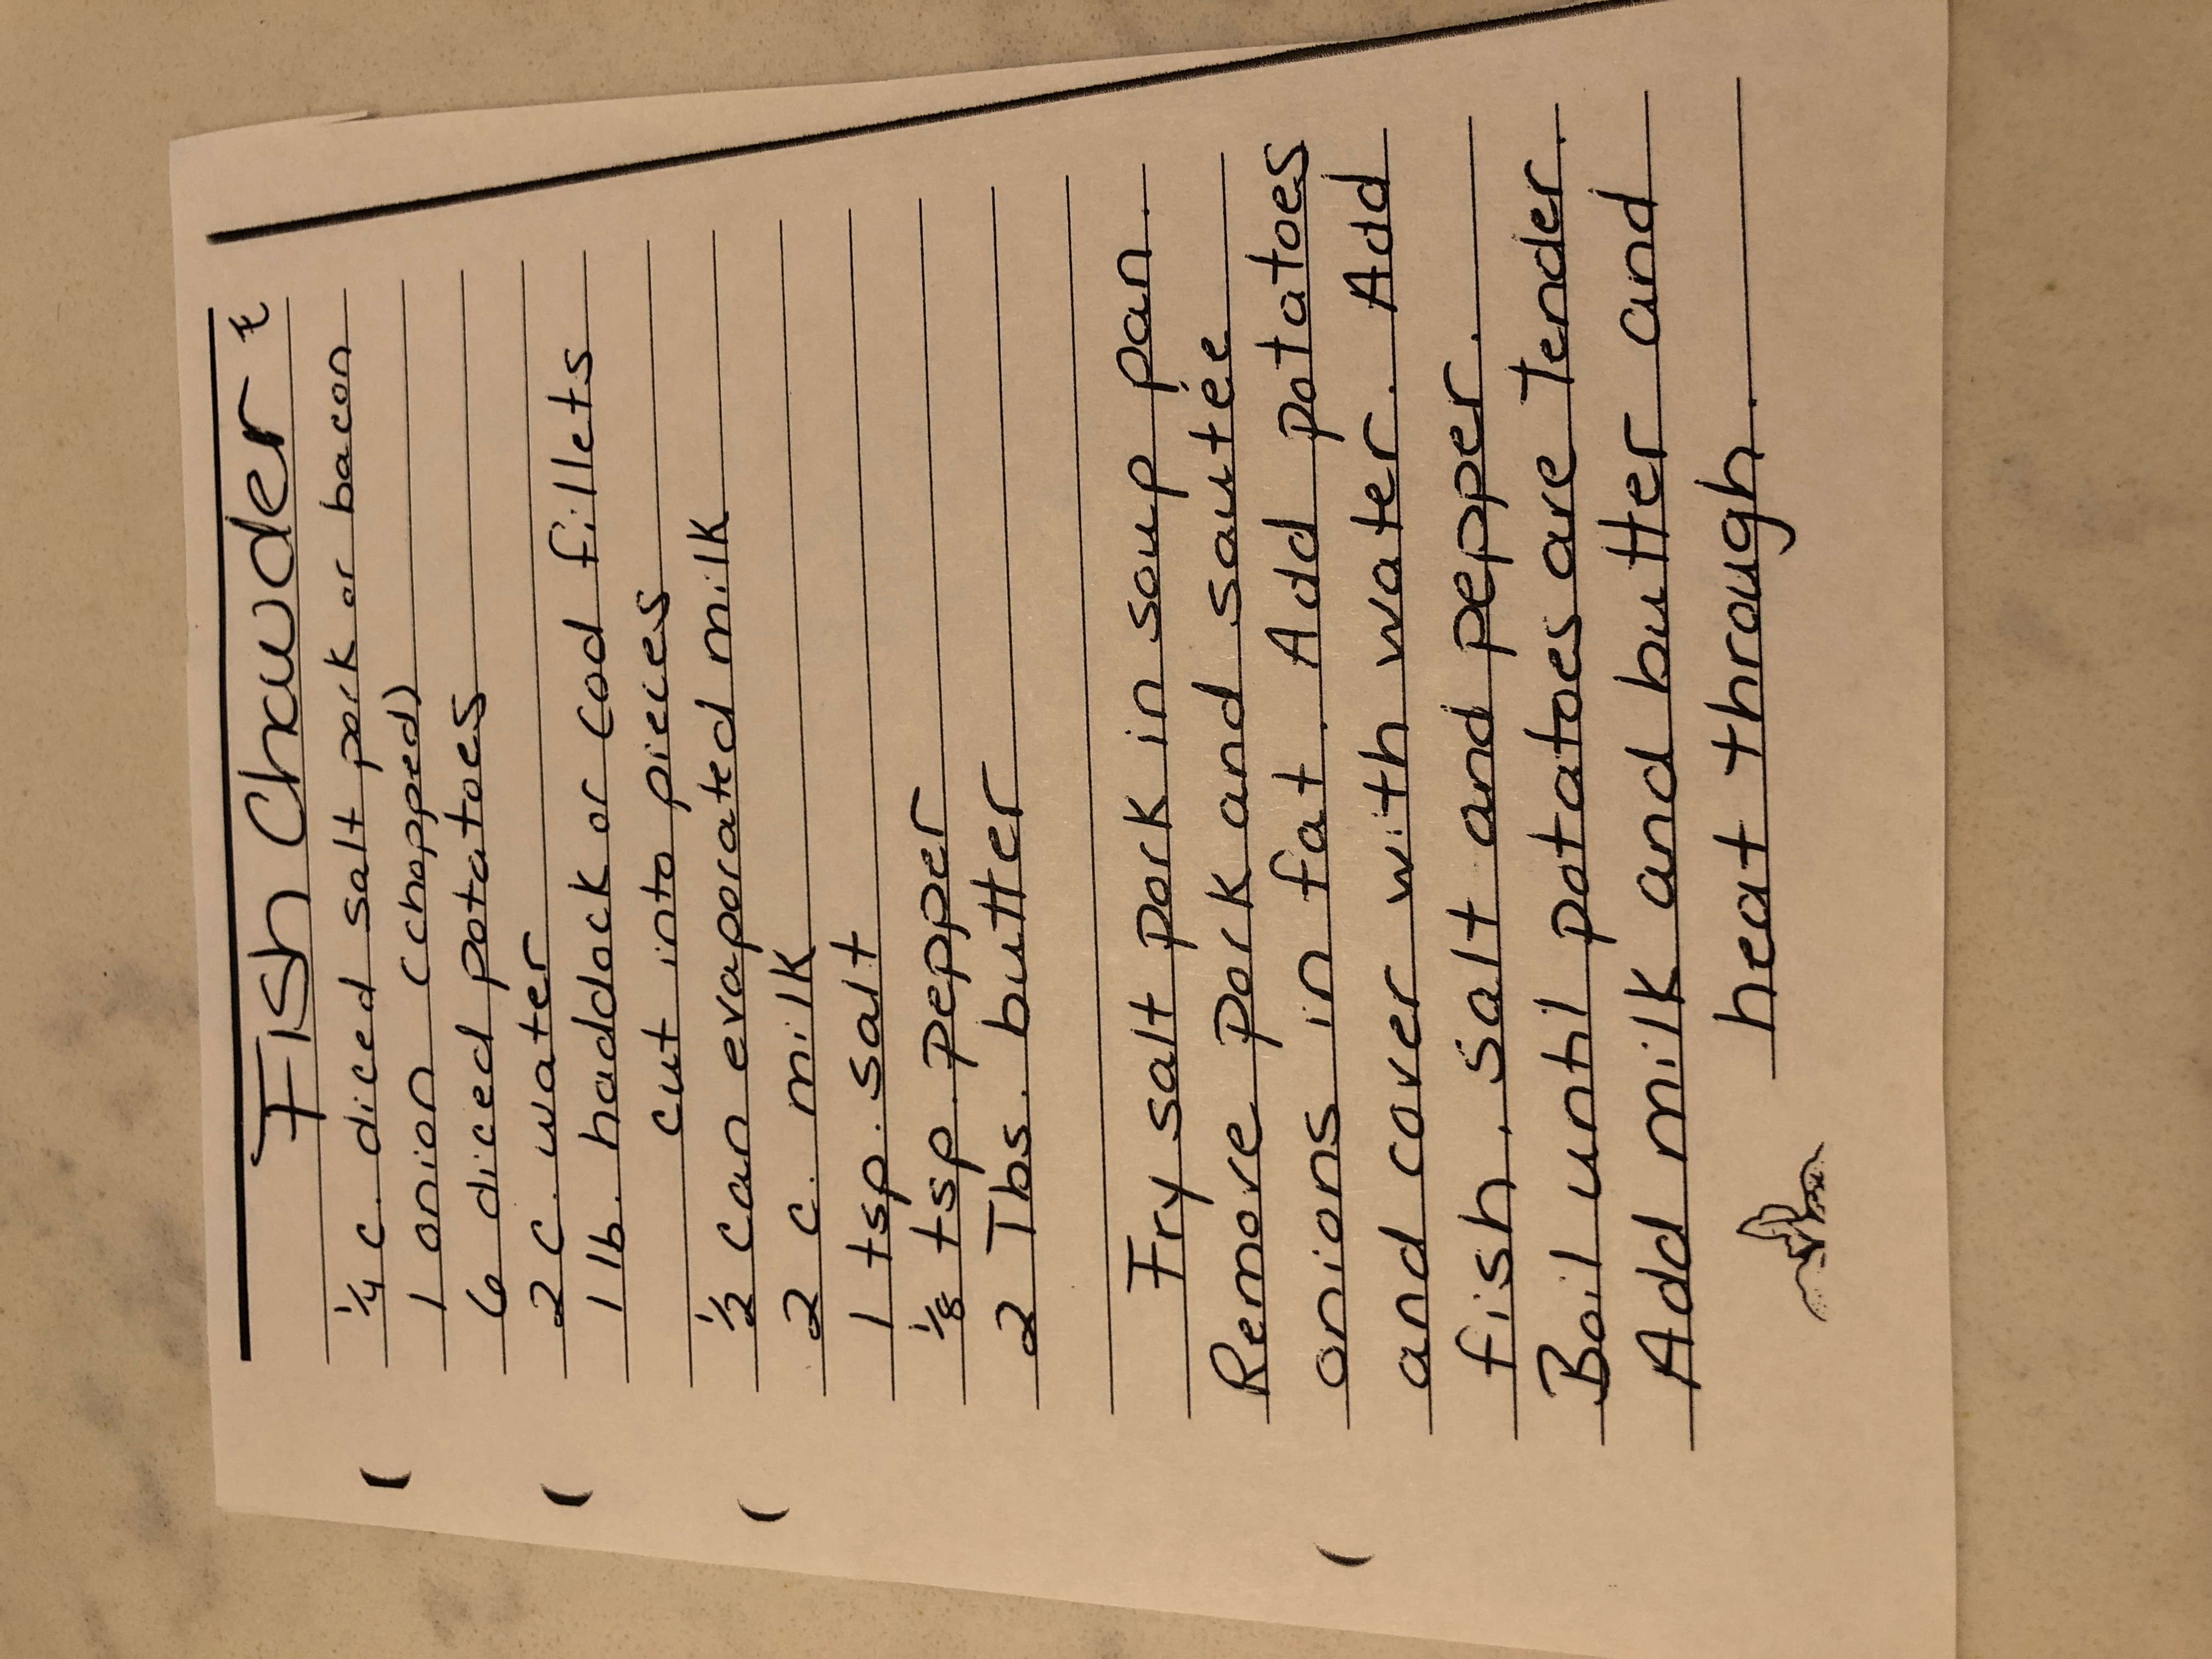 Fish Chowder
¼ c. diced salt pork or bacon
1 onion (chopped)
6 diced potatoes
2 c. water
1 lb. haddock or cod fillets
cut into pieces
½ can evaporated milk
2 c. milk
1 tsp. salt
⅛ tsp. pepper
2 Tbs. butter
Fry salt pork in soup pan.
Remove pork and sautée
onions in fat. Add potatoes
and cover with water. Add
fish, salt and pepper.
Boil until potatoes are tender.
Add milk and butter and
heat through.